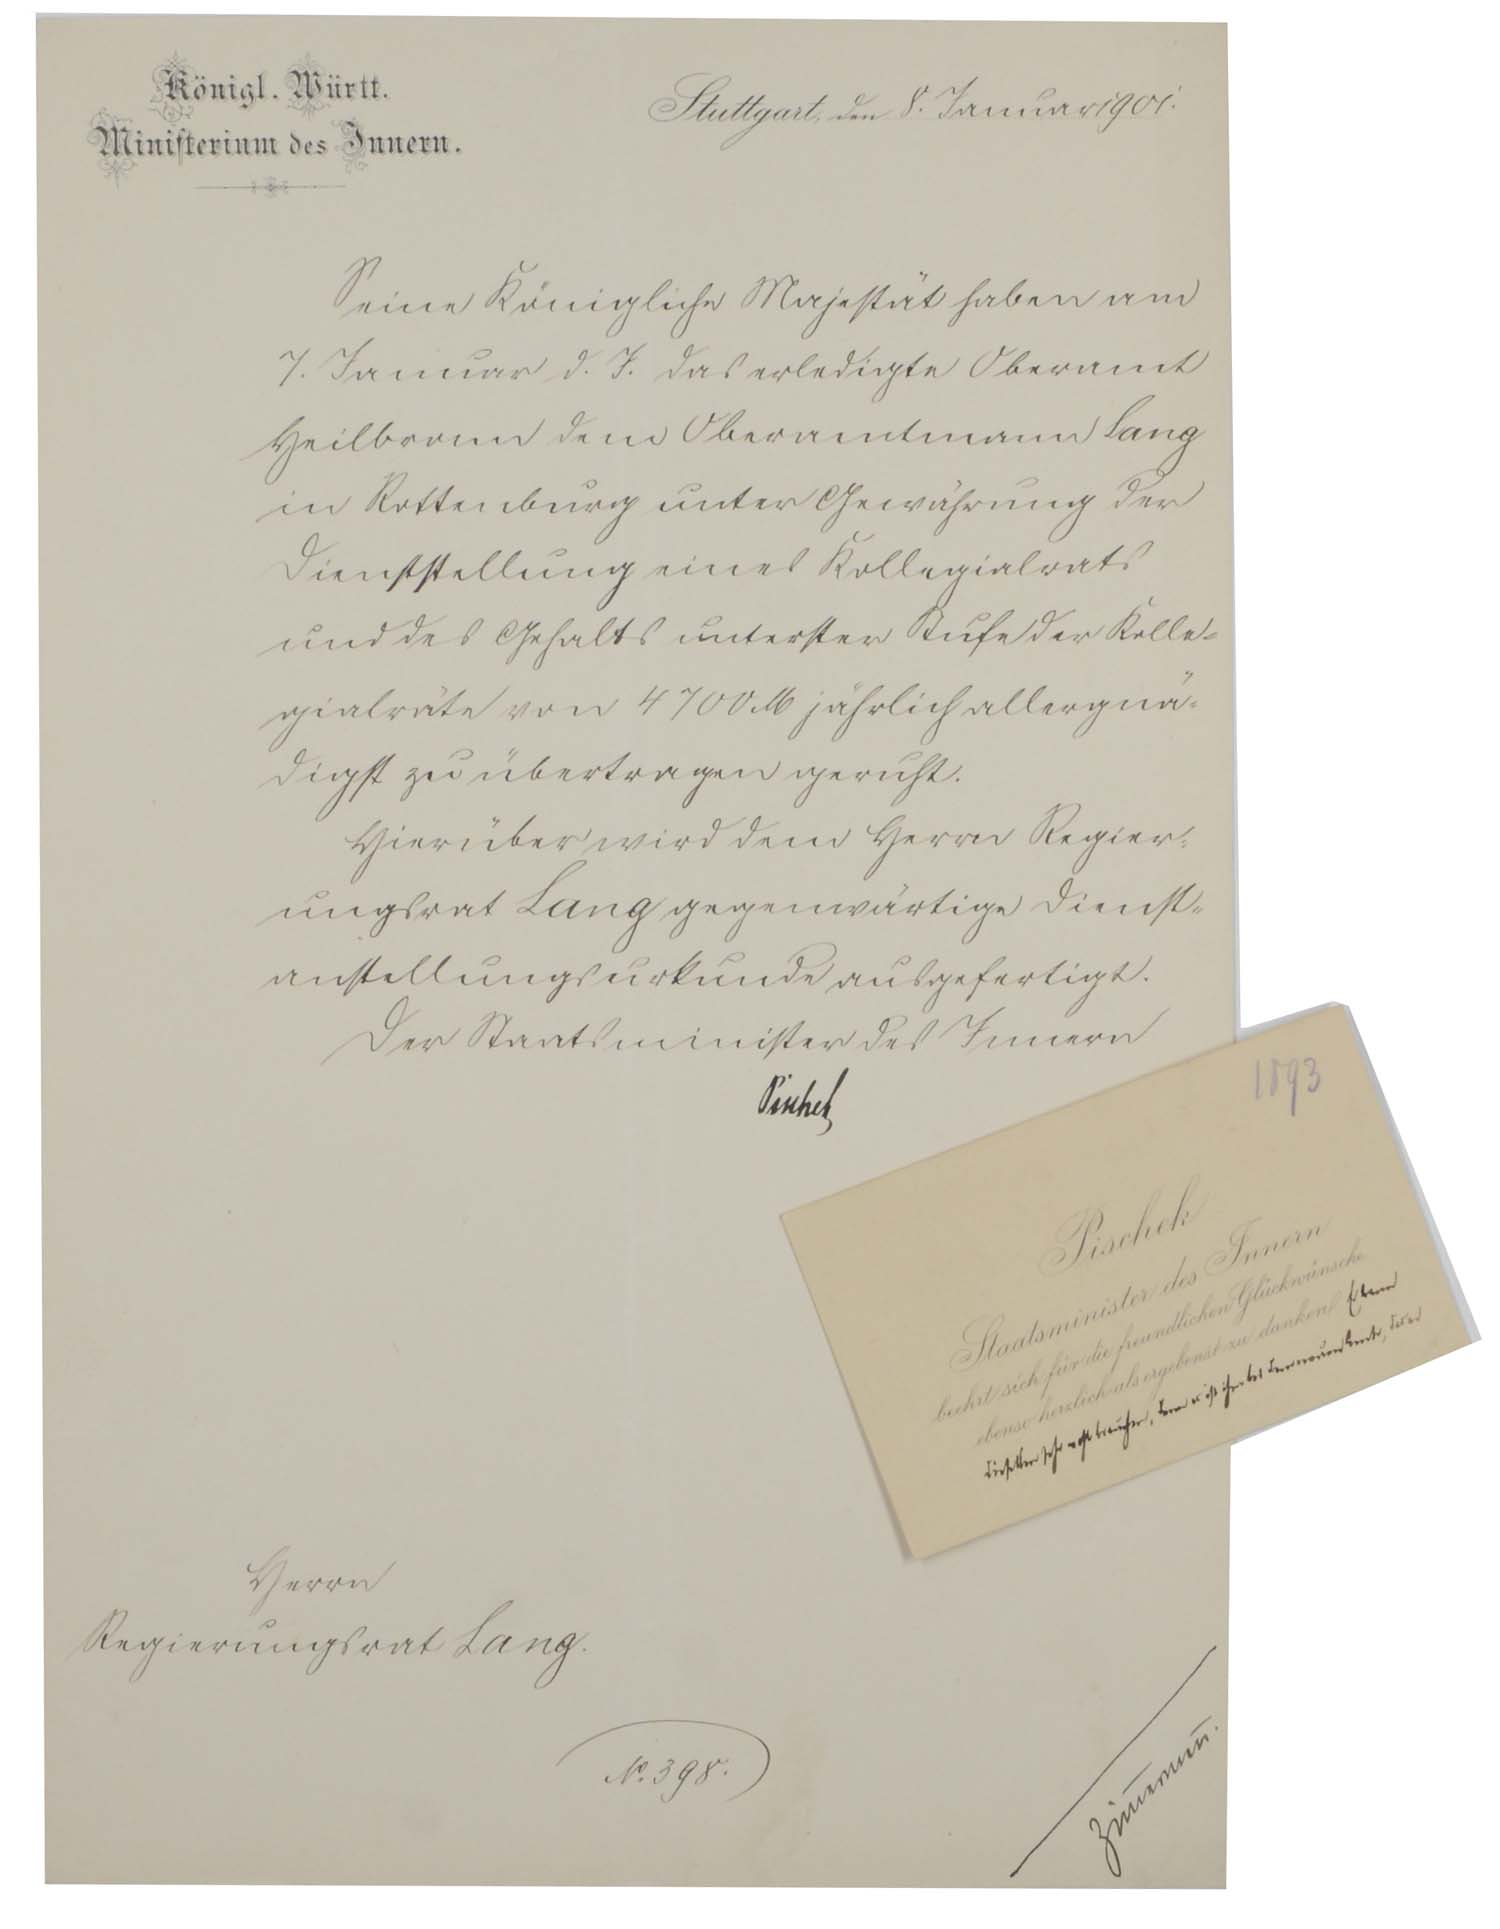 Königl. Württ.
Ministerium des Innern.
Stuttgart, den 8. Januar 1901.
Seine Königliche Majestät haben am
7. Januar d. J. das erledigte Oberamt
Heilbronn dem Oberamtmann Lang
in Rottenburg unter Gewährung der
Dienststellung eines Kollegialrats
und des Gehalts unterster Stufe der Kolle-
gialräte von 4700 M jährlich allergnä-
digst zu übertragen geruht.
Hierüber wird dem Herrn Regier-
ungsrat Lang gegenwärtige Dienst-
anstellungsurkunde ausgefertigt.
Der Staatsminister des Innern
Pischek
1893
Pischek
Staatsminister des Innern
beehrt sich für die freundlichen Glückwünsche
ebenso herzlich als ergebenst zu danken!
Herrn
Regierungsrat Lang.
No. 398.